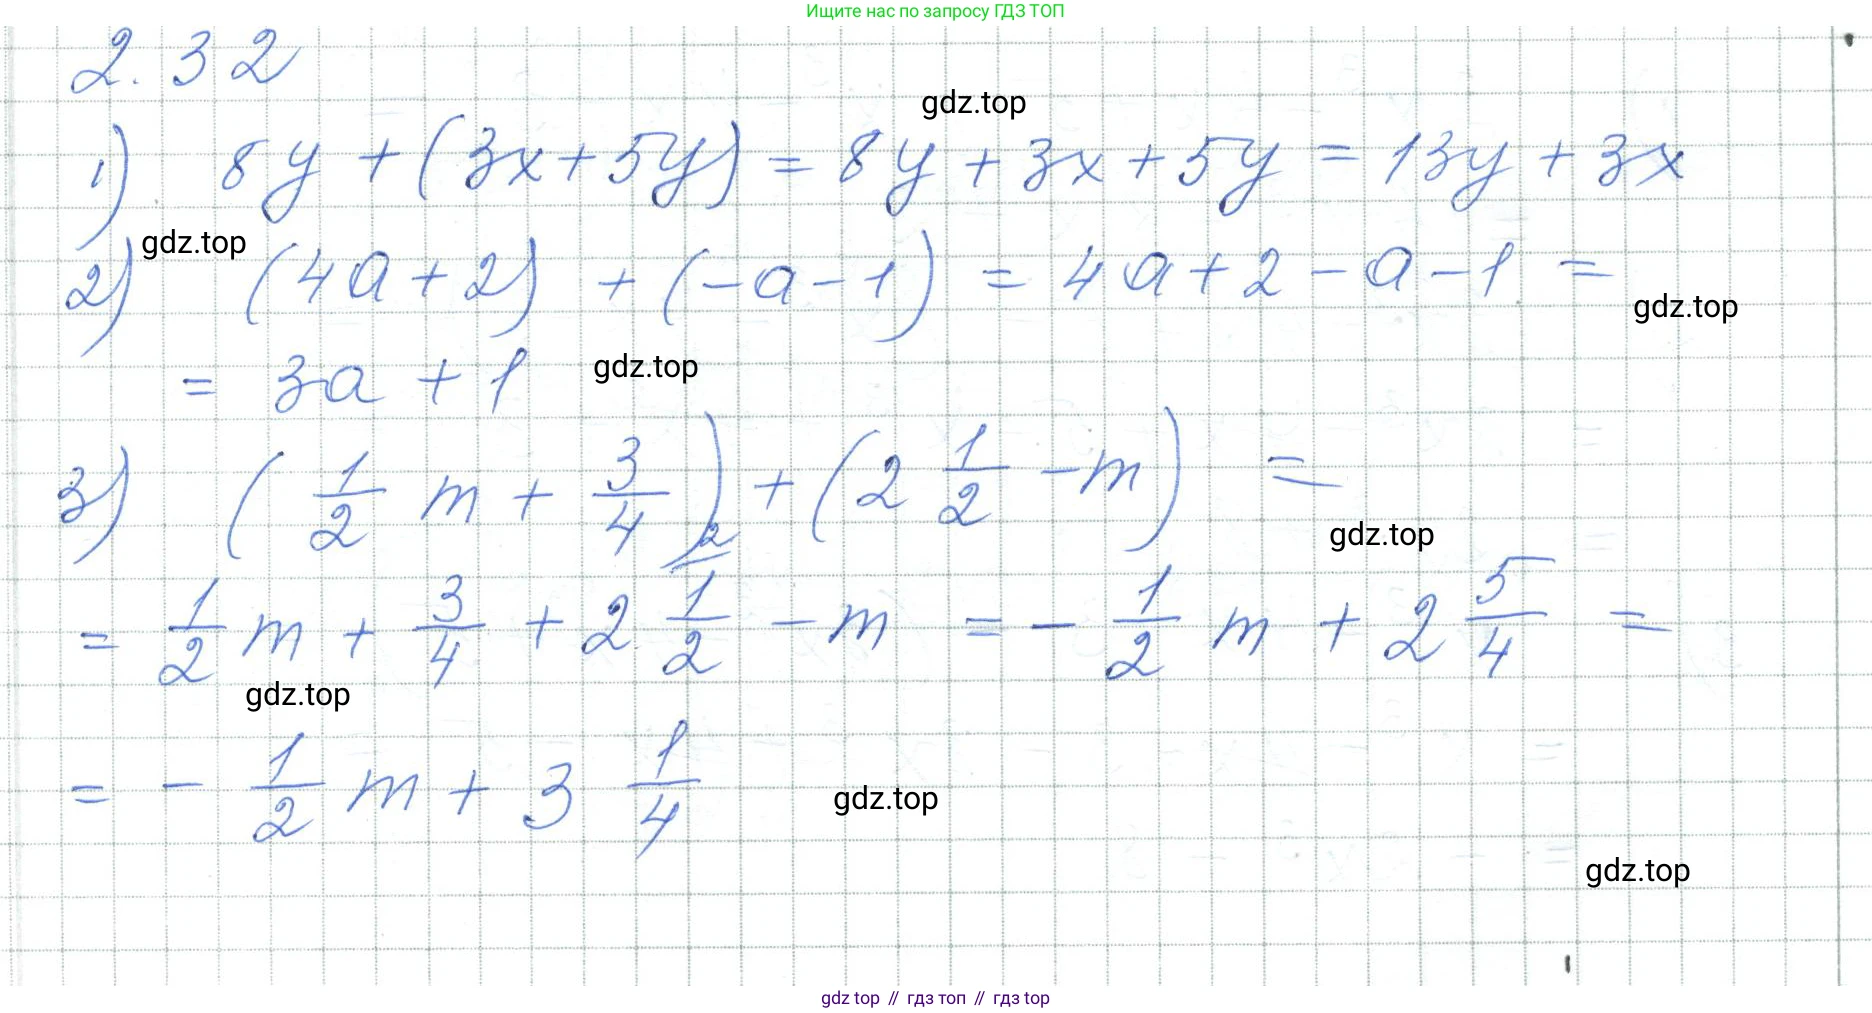 Ищите нас по запросу ГДЗ ТОП
2.32
gdz.top
1) 8y + (3x + 5y) = 8y + 3x + 5y = 13y + 3x
gdz.top
2) (4a + 2) + (-a - 1) = 4a + 2 - a - 1 =
gdz.top
= 3a + 1
gdz.top
3) (1/2 m + 3/4) + (2 1/2 - m) =
gdz.top
= 1/2 m + 3/4 + 2 1/2 - m = - 1/2 m + 2 5/4 =
2
gdz.top
= - 1/2 m + 3 1/4
gdz.top
gdz.top
gdz top // гдз топ // гдз top